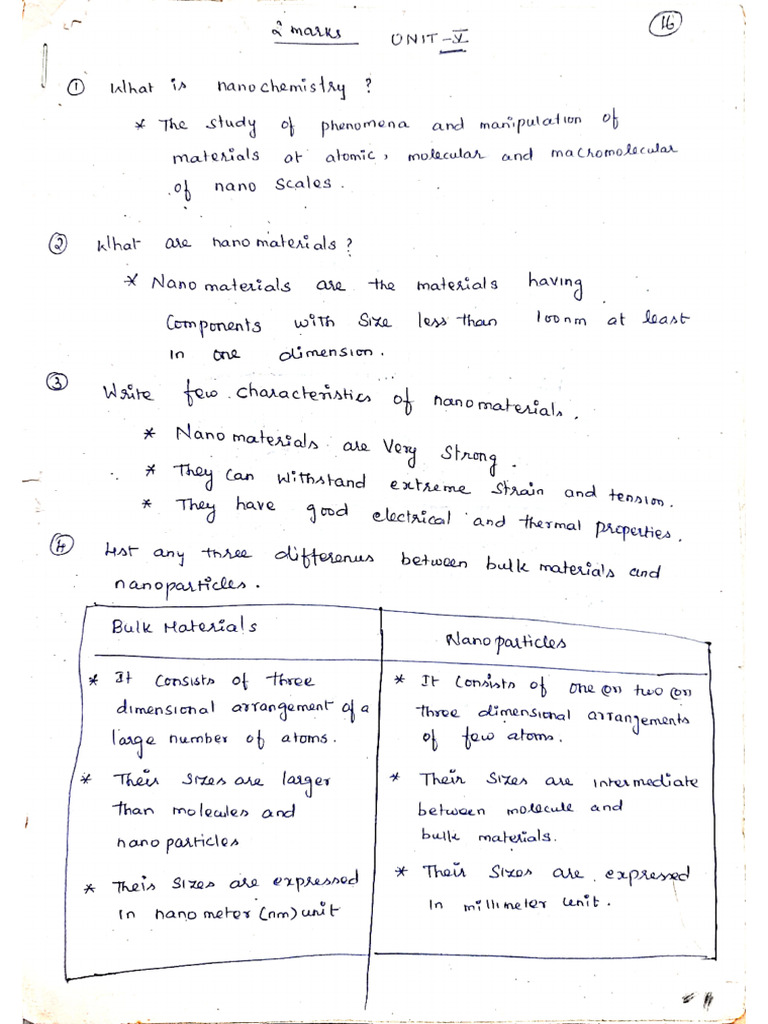 2 marks UNIT-V
16
① What is nanochemistry?
* The study of phenomena and manipulation of
materials at atomic, molecular and macromolecular
of nano scales.
② What are nanomaterials?
* Nanomaterials are the materials having
Components with size less than 100nm at least
in one dimension.
③ Write few characteristics of nanomaterials.
* Nanomaterials are very strong.
* They can withstand extreme strain and tension.
* They have good electrical and thermal properties.
④ List any three differenus between bulk materials and
nanoparticles.
Bulk Materials
* It consists of three
dimensional arrangement of a
large number of atoms.
* Their sizes are larger
than molecules and
nanoparticles
* Theis sizes are expressed
in nanometer (nm) unit
Nanoparticles
* It consists of one (or) two (or)
three dimensional arrangements
of few atoms.
* Their sizes are intermediate
between molecule and
bulk materials.
* Their sizes are expressed
in millimeter unit.